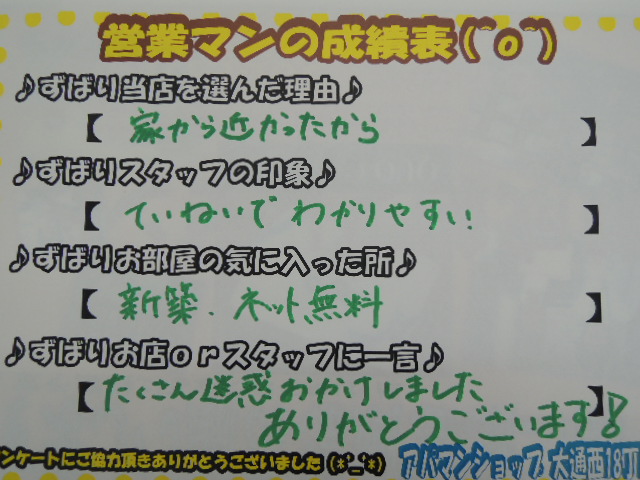 営業マンの成績表(^o^)
♪ずばり当店を選んだ理由♪
【家から近かったから】
♪ずばりスタッフの印象♪
【ていねいでわかりやすい】
♪ずばりお部屋の気に入った所♪
【新築、ネット無料】
♪ずばりお店orスタッフに一言♪
【たくさん迷惑おかけしました】
ありがとうございます!
ンケートにご協力頂きありがとうございました(*^_^*)
アパマンショップ 大通西18丁